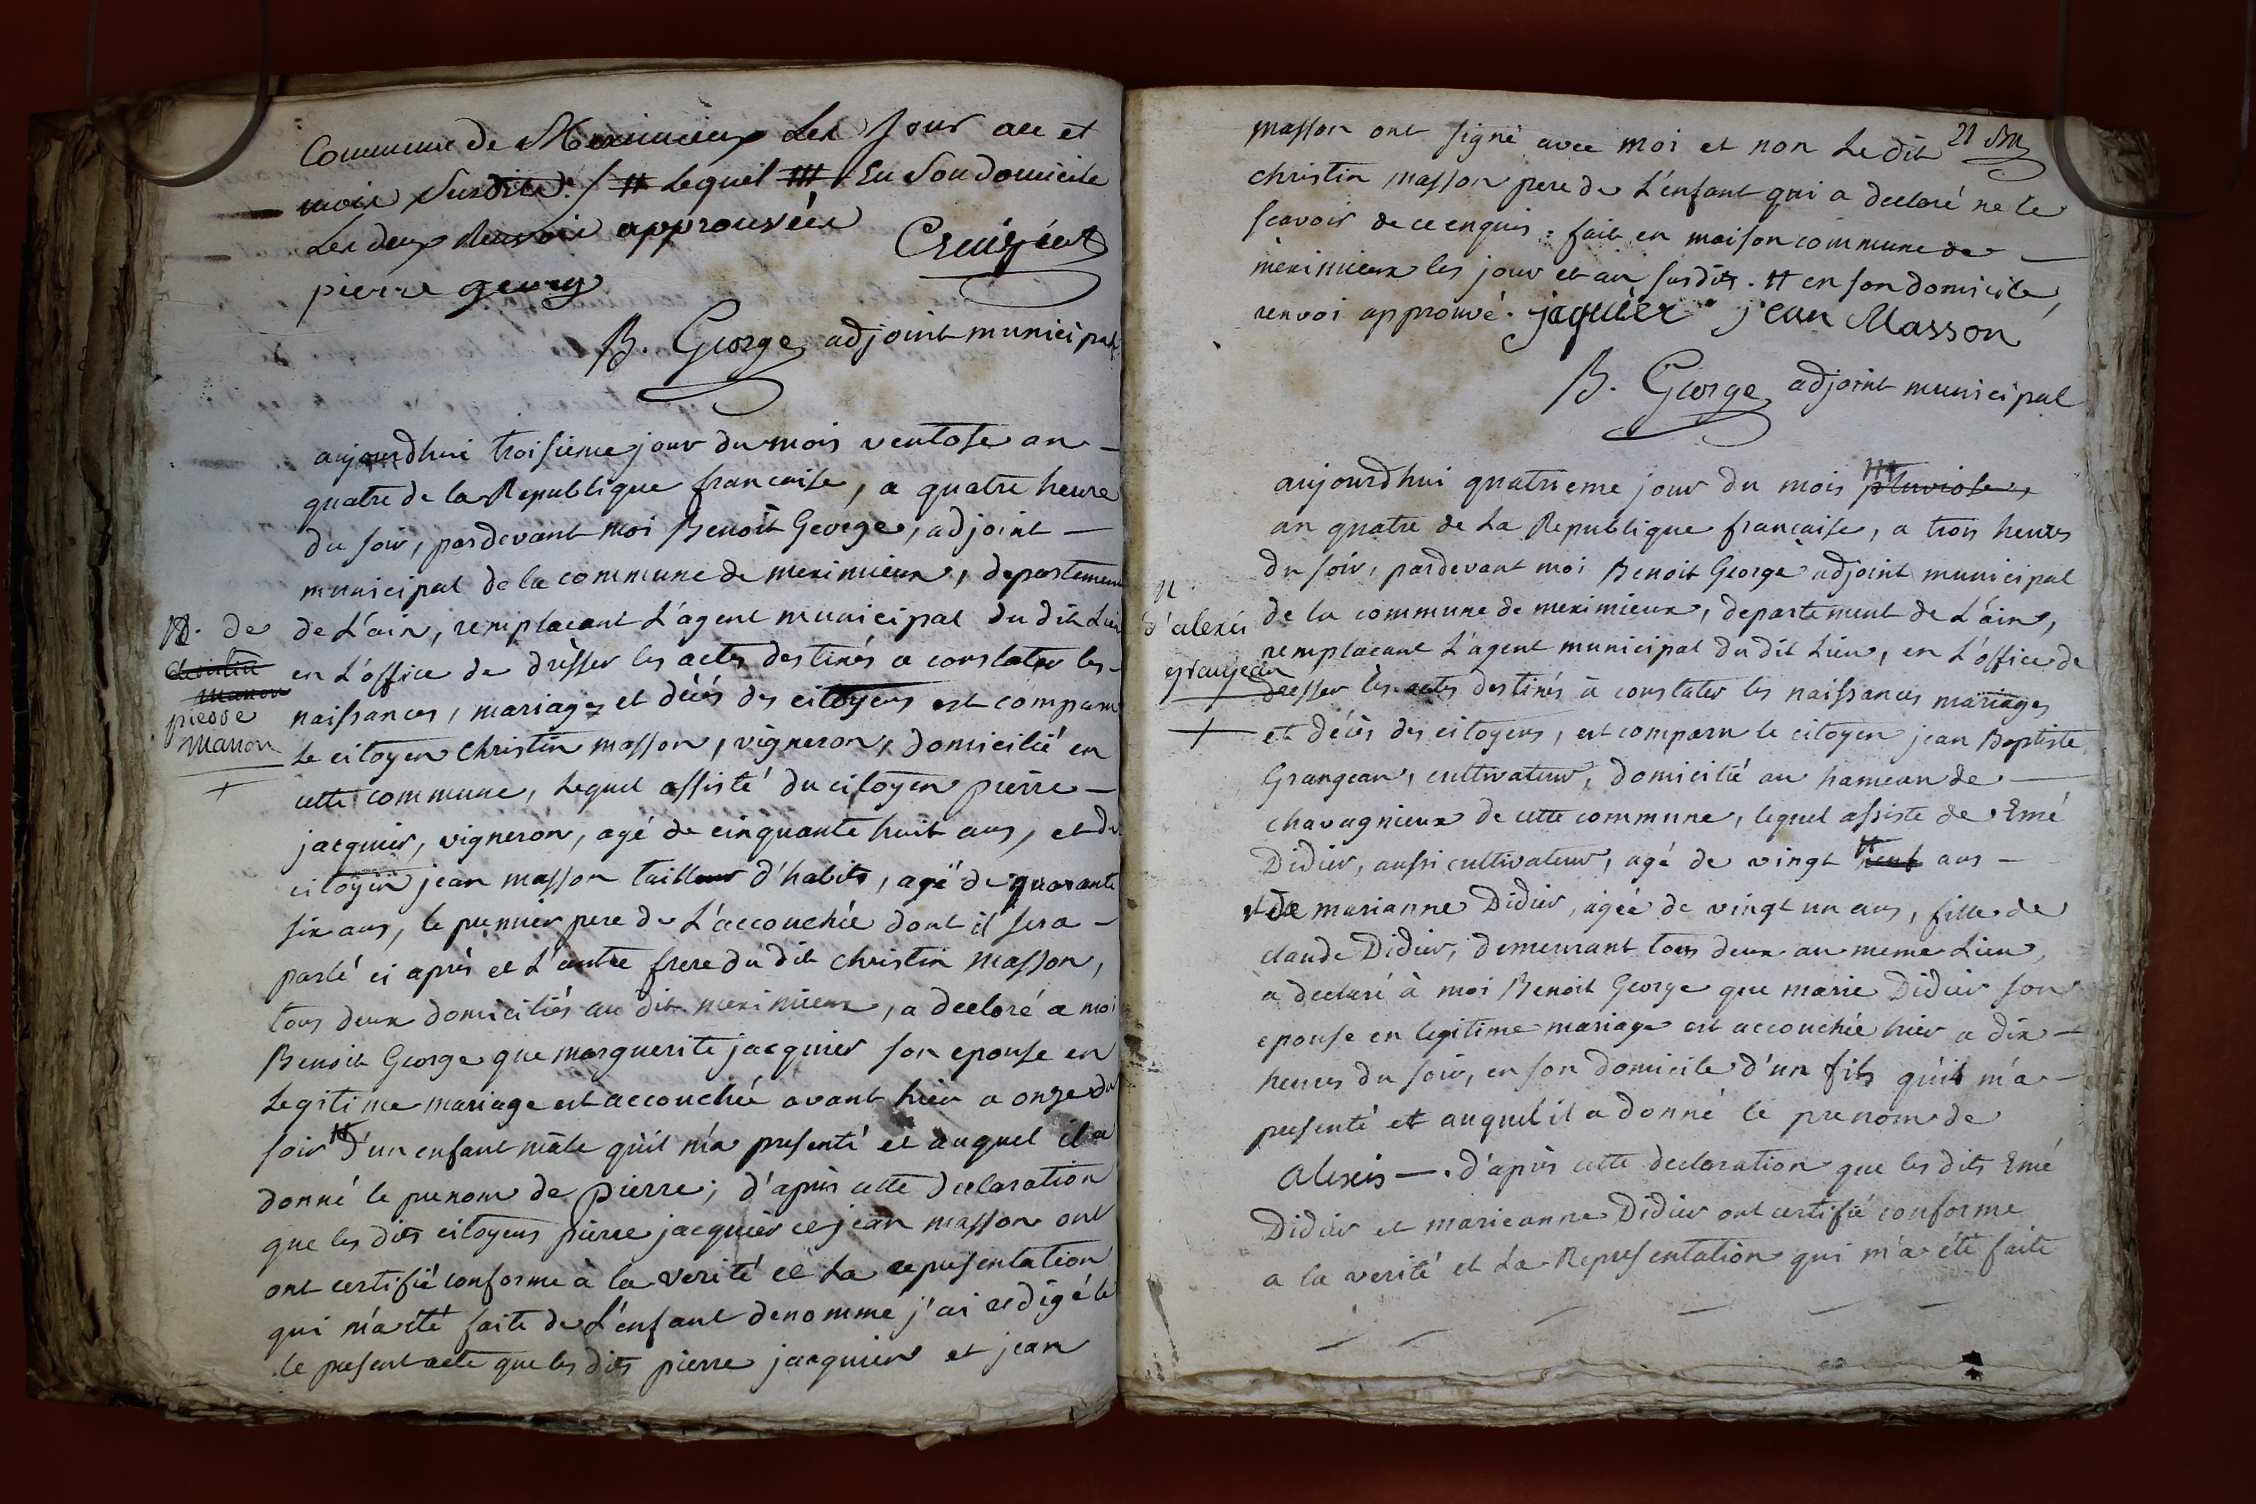 Commune de Meximieux Les Jour an et
mois Susdits. / # Lequel ### En Son domicile
Les deux Renvois approuvées
pierre geury
B. George adjoint municipal
aujourdhui troisieme jour du mois ventose an -
quatre de la Republique francaise, a quatre heure
du soir, pardevant moi Benoit George, adjoint -
municipal de la commune de meximieux, departement
de L'ain, remplacant L'agent municipal du dit Lieu
en L'office de drésser les actes destinés a constater les -
naissances, mariages et décés des citoyens est comparu
Le citoyen christin masson, vigneron, domicilié en
cette commune, Lequel assisté du citoyen pierre -
jacquier, vigneron, agé de cinquante huit ans, et du
citoyen jean masson tailleur d'habits, agé de quarante
six ans, le premier pere de L'accouchée dont il sera -
parlé ci après et L'autre frere du dit christin masson,
tous deux domiciliés au dit meximieux, a declaré a moi
Benoit George que marguerite jacquier son epouse en
Legitime mariage est accouchée avant hier a onze du
soir # d'un enfant mâle qu'il m'a presenté et auquel il a
donné le prenom de pierre; d'après cette declaration
que les dits citoyens pierre jacquier et jean masson ont
ont certifié conforme à la verité et La representation
qui m'a été faite de L'enfant denommé j'ai redigé le
le present acte que les dits pierre jacquier et jean
N. de
christin
masson
pierre
masson
+
21 
masson ont signé avec moi et non Le dit
christin masson pere de L'enfant qui a declaré ne le
scavoir de ce enquis. fait en maison commune de -
meximieux les jour et an susdits. # en son domicile,
renvoi approuvé. jaquier jean Masson
B. George adjoint municipal
aujourdhui quatrieme jour du mois ### pluviose,
an quatre de La Republique francaise, a trois heures
du soir, pardevant moi Benoit George adjoint municipal
de la commune de meximieux, departement de L'ain,
remplacant L'agent municipal du dit Lieu, en L'office de
dresser les actes destinés à constater les naissances mariages
et décès des citoyens, est comparu le citoyen jean Baptiste
Grangean, cultivateur, domicilié au hameau de -
chavagnieux de cette commune, lequel assiste de Emé
Didier, aussi cultivateur, agé de vingt # neuf ans -
et de marianne Didier, agée de vingt un ans, fille de
claude Didier, demeurant tous deux au meme Lieu,
a declaré à moi Benoit George que marie Didier son
epouse en legitime mariage est accouchée hier a dix -
heures du soir, en son domicile d'un fils qu'il m'a -
presenté et auquel il a donné le prenom de
Alexis -. d'après cette declaration que les dits Emé
Didier et marieanne Didier ont certifié conforme
a la verité et La Representation qui m'a été faite
N.
d'alexis
grangean
+